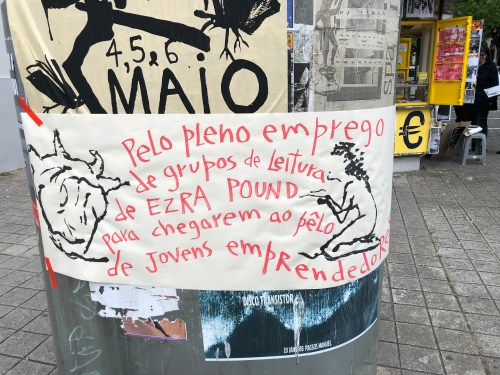 4, 5 e 6
MAIO
Pelo pleno emprego
de grupos de Leitura
de EZRA POUND
para chegarem ao pêlo
de jovens empreendedore
€
DISCO TRANSISTOR
23 JAN/98 PASSOS MANUEL